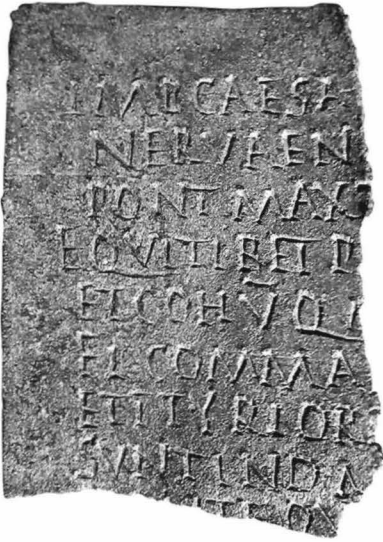 IMP CAESA
NERVAE N
PONT MAX
EQVITIB ET P
ET COH V Q
ET COMMA
ET I TYRIOR
SVNT IN DA